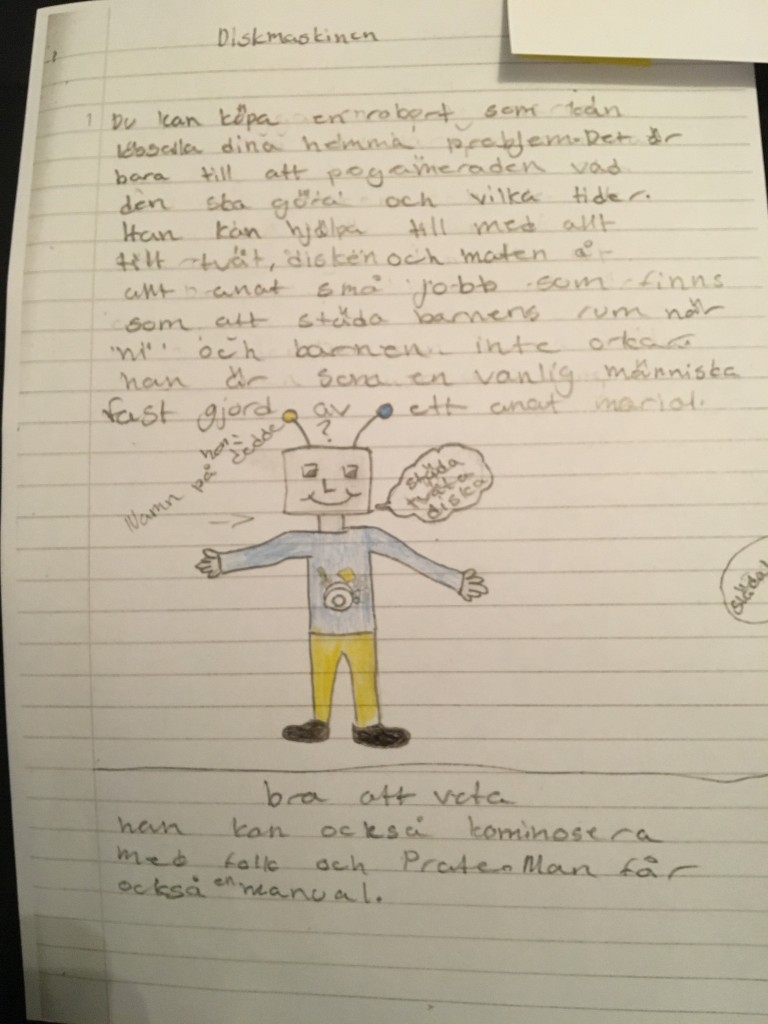 Diskmaskinen
1 Du kan köpa en robert som kan
lösa dina hemma problem. Det är
bara till att pogameraden vad
den ska göra och vilka tider.
Han kan hjälpa till med allt
till tvät, disken och maten är
allt anat små jobb som finns
som att städa barnens rum när
"ni" och barnen inte orkar.
han är som en vanlig människa
fast gjord av ett anat marial.
?
Namn på hen:
dedde
städa
tväta
diska
städa!
bra att veta
han kan också kominosera
med folk och Prate. Man får
också en manual.